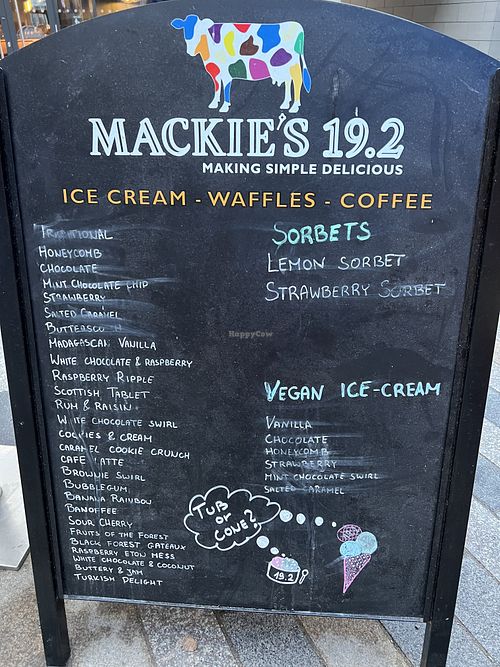 MACKIE'S 19.2
MAKING SIMPLE DELICIOUS
ICE CREAM - WAFFLES - COFFEE
TRADITIONAL
HONEYCOMB
CHOCOLATE
MINT CHOCOLATE CHIP
STRAWBERRY
SALTED CARAMEL
BUTTERSCOTCH
MADAGASCAN VANILLA
WHITE CHOCOLATE & RASPBERRY
RASPBERRY RIPPLE
SCOTTISH TABLET
RUM & RAISIN
WHITE CHOCOLATE SWIRL
COOKIES & CREAM
CARAMEL COOKIE CRUNCH
CAFE LATTE
BROWNIE SWIRL
BUBBLEGUM
BANANA RAINBOW
BANOFFEE
SOUR CHERRY
FRUITS OF THE FOREST
BLACK FOREST GATEAUX
RASPBERRY ETON MESS
WHITE CHOCOLATE & COCONUT
BUTTERY & JAM
TURKISH DELIGHT
SORBETS
LEMON SORBET
STRAWBERRY SORBET
VEGAN ICE-CREAM
VANILLA
CHOCOLATE
HONEYCOMB
STRAWBERRY
MINT CHOCOLATE SWIRL
SALTED CARAMEL
TUB
OR
CONE?
19.2
HappyCow